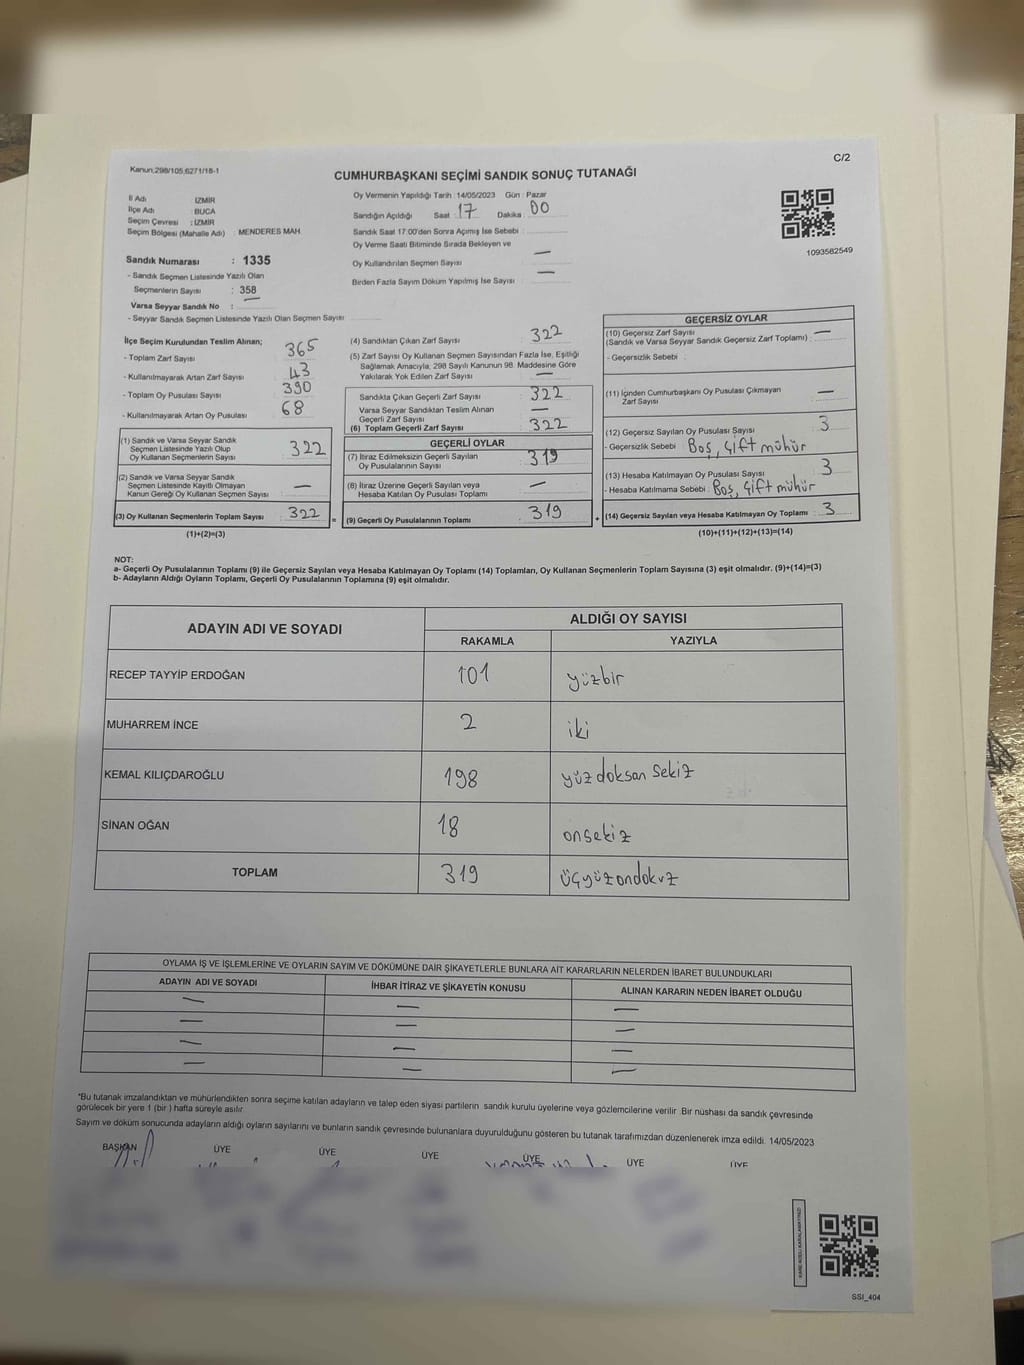 C/2
Kanun;298/105,6271/18-1
CUMHURBAŞKANI SEÇİMİ SANDIK SONUÇ TUTANAĞI
İl Adı : İZMİR
İlçe Adı : BUCA
Seçim Çevresi : İZMİR
Seçim Bölgesi (Mahalle Adı) : MENDERES MAH.
Sandık Numarası : 1335
- Sandık Seçmen Listesinde Yazılı Olan
Seçmenlerin Sayısı : 358
Varsa Seyyar Sandık No : —
- Seyyar Sandık Seçmen Listesinde Yazılı Olan Seçmen Sayısı
Oy Vermenin Yapıldığı Tarih : 14/05/2023 Gün : Pazar
Sandığın Açıldığı Saat : 17 Dakika : 00
Sandık Saat 17:00'den Sonra Açımış İse Sebebi :
Oy Verme Saati Bitiminde Sırada Bekleyen ve
Oy Kullandırılan Seçmen Sayısı —
Birden Fazla Sayım Döküm Yapılmış İse Sayısı : —
1093582549
İlçe Seçim Kurulundan Teslim Alınan;
- Toplam Zarf Sayısı 365
- Kullanılmayarak Artan Zarf Sayısı 43
- Toplam Oy Pusulası Sayısı 390
- Kullanılmayarak Artan Oy Pusulası 68
(1) Sandık ve Varsa Seyyar Sandık
Seçmen Listesinde Yazılı Olup
Oy Kullanan Seçmenlerin Sayısı 322
(2) Sandık ve Varsa Seyyar Sandık
Seçmen Listesinde Kayıtlı Olmayan
Kanun Gereği Oy Kullanan Seçmen Sayısı —
(3) Oy Kullanan Seçmenlerin Toplam Sayısı 322
(1)+(2)=(3)
(4) Sandıktan Çıkan Zarf Sayısı 322
(5) Zarf Sayısı Oy Kullanan Seçmen Sayısından Fazla İse, Eşitliği
Sağlamak Amacıyla, 298 Sayılı Kanunun 98. Maddesine Göre
Yakılarak Yok Edilen Zarf Sayısı —
Sandıkta Çıkan Geçerli Zarf Sayısı 322
Varsa Seyyar Sandıktan Teslim Alınan
Geçerli Zarf Sayısı —
(6) Toplam Geçerli Zarf Sayısı 322
GEÇERLİ OYLAR
(7) İtiraz Edilmeksizin Geçerli Sayılan
Oy Pusulalarının Sayısı 319
(8) İtiraz Üzerine Geçerli Sayılan veya
Hesaba Katılan Oy Pusulası Toplamı —
= (9) Geçerli Oy Pusulalarının Toplamı 319
GEÇERSİZ OYLAR
(10) Geçersiz Zarf Sayısı
(Sandık ve Varsa Seyyar Sandık Geçersiz Zarf Toplamı) —
- Geçersizlik Sebebi :
(11) İçinden Cumhurbaşkanı Oy Pusulası Çıkmayan
Zarf Sayısı —
(12) Geçersiz Sayılan Oy Pusulası Sayısı 3
- Geçersizlik Sebebi : Boş, Çift mühür
(13) Hesaba Katılmayan Oy Pusulası Sayısı 3
- Hesaba Katılmama Sebebi : Boş, Çift mühür
+ (14) Geçersiz Sayılan veya Hesaba Katılmayan Oy Toplamı 3
(10)+(11)+(12)+(13)=(14)
NOT:
a- Geçerli Oy Pusulalarının Toplamı (9) ile Geçersiz Sayılan veya Hesaba Katılmayan Oy Toplamı (14) Toplamları, Oy Kullanan Seçmenlerin Toplam Sayısına (3) eşit olmalıdır. (9)+(14)=(3)
b- Adayların Aldığı Oyların Toplamı, Geçerli Oy Pusulalarının Toplamına (9) eşit olmalıdır.
ADAYIN ADI VE SOYADI
ALDIĞI OY SAYISI
RAKAMLA YAZIYLA
RECEP TAYYİP ERDOĞAN 101 yüzbir
MUHARREM İNCE 2 iki
KEMAL KILIÇDAROĞLU 198 yüz doksan sekiz
SİNAN OĞAN 18 onsekiz
TOPLAM 319 üçyüzondokuz
OYLAMA İŞ VE İŞLEMLERİNE VE OYLARIN SAYIM VE DÖKÜMÜNE DAİR ŞİKAYETLERLE BUNLARA AİT KARARLARIN NELERDEN İBARET BULUNDUKLARI
ADAYIN ADI VE SOYADI İHBAR İTİRAZ VE ŞİKAYETİN KONUSU ALINAN KARARIN NEDEN İBARET OLDUĞU
— — —
— — —
— — —
— — —
*Bu tutanak imzalandıktan ve mühürlendikten sonra seçime katılan adayların ve talep eden siyasi partilerin sandık kurulu üyelerine veya gözlemcilerine verilir. Bir nüshası da sandık çevresinde
görülecek bir yere 1 (bir ) hafta süreyle asılır
Sayım ve döküm sonucunda adayların aldığı oyların sayılarını ve bunların sandık çevresinde bulunanlara duyurulduğunu gösteren bu tutanak tarafımızdan düzenlenerek imza edildi. 14/05/2023
BAŞKAN ÜYE ÜYE ÜYE ÜYE ÜYE ÜYE
SSI_404